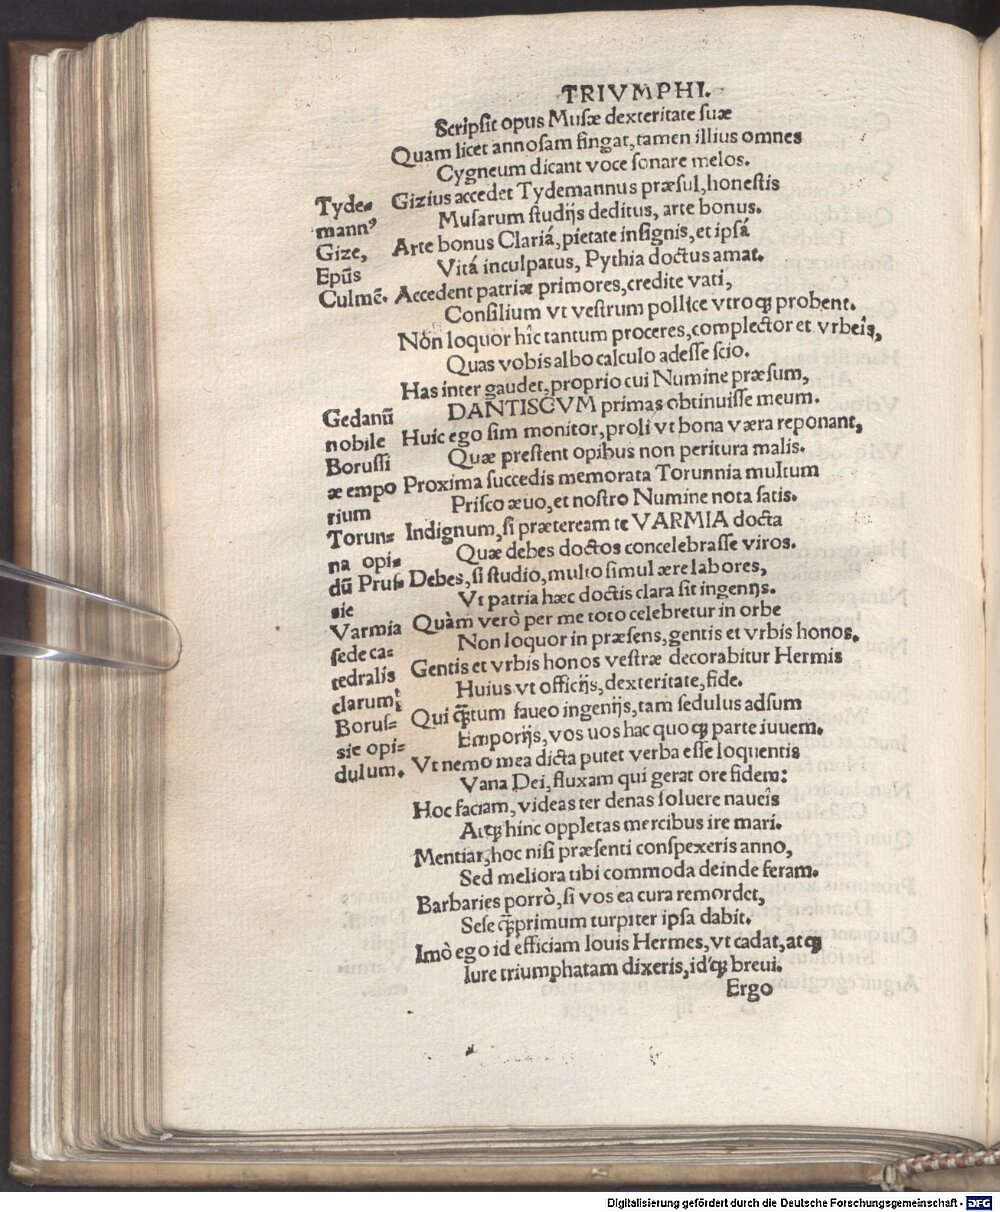 TRIVMPHI.
Scripsit opus Musæ dexteritate suæ
Quam licet annosam fingat, tamen illius omnes
Cygneum dicant voce sonare melos.
Gizius accedet Tydemannus præsul, honestis
Musarum studijs deditus, arte bonus.
Arte bonus Clariá, pietate insignis, et ipsá
Vitá inculpatus, Pythia doctus amat.
Accedent patriæ primores, credite vati,
Consilium vt vestrum pollice vtroqꝫ probent.
Non loquor hîc tantum proceres, complector et vrbeis,
Quas vobis albo calculo adesse scio.
Has inter gaudet, proprio cui Numine præsum,
DANTISCVM primas obtinuisse meum.
Huic ego sim monitor, proli vt bona væra reponant,
Quæ prestent opibus non peritura malis.
Proxima succedis memorata Torunnia multum
Prisco æuo, et nostro Numine nota satis.
Indignum, si præteream te VARMIA docta
Quæ debes doctos concelebrasse viros.
Debes, si studio, multo simul ære labores,
Vt patria hæc doctis clara sit ingenijs.
Quàm verò per me toto celebretur in orbe
Non loquor in præsens, gentis et vrbis honos.
Gentis et vrbis honos vestræ decorabitur Hermis
Huius vt officijs, dexteritate, fide.
Qui q̄tum faueo ingenijs, tam sedulus adsum
Emporijs, vos uos hac quoqꝫ parte iuuem.
Vt nemo mea dicta putet verba esse loquentis
Vana Dei, fluxam qui gerat ore fidem:
Hoc faciam, videas ter denas soluere naueis
Atqꝫ hinc oppletas mercibus ire mari.
Mentiar, hoc nisi præsenti conspexeris anno,
Sed meliora tibi commoda deinde feram.
Barbaries porrò, si vos ea cura remordet,
Sese q̄primum turpiter ipsa dabit.
Imò ego id efficiam Iouis Hermes, vt cadat, atqꝫ
Iure triumphatam dixeris, id'qꝫ breui.
Ergo
Tyde=
mann⁹
Gize,
Epūs
Culmē.
Gedanū
nobile
Borussi
æ empo
rium
Torun=
na opi=
dū Prus
sie
Varmia
sede ca=
tedralis
clarum
Borus=
sie opi=
dulum.
Digitalisierung gefördert durch die Deutsche Forschungsgemeinschaft - DFG